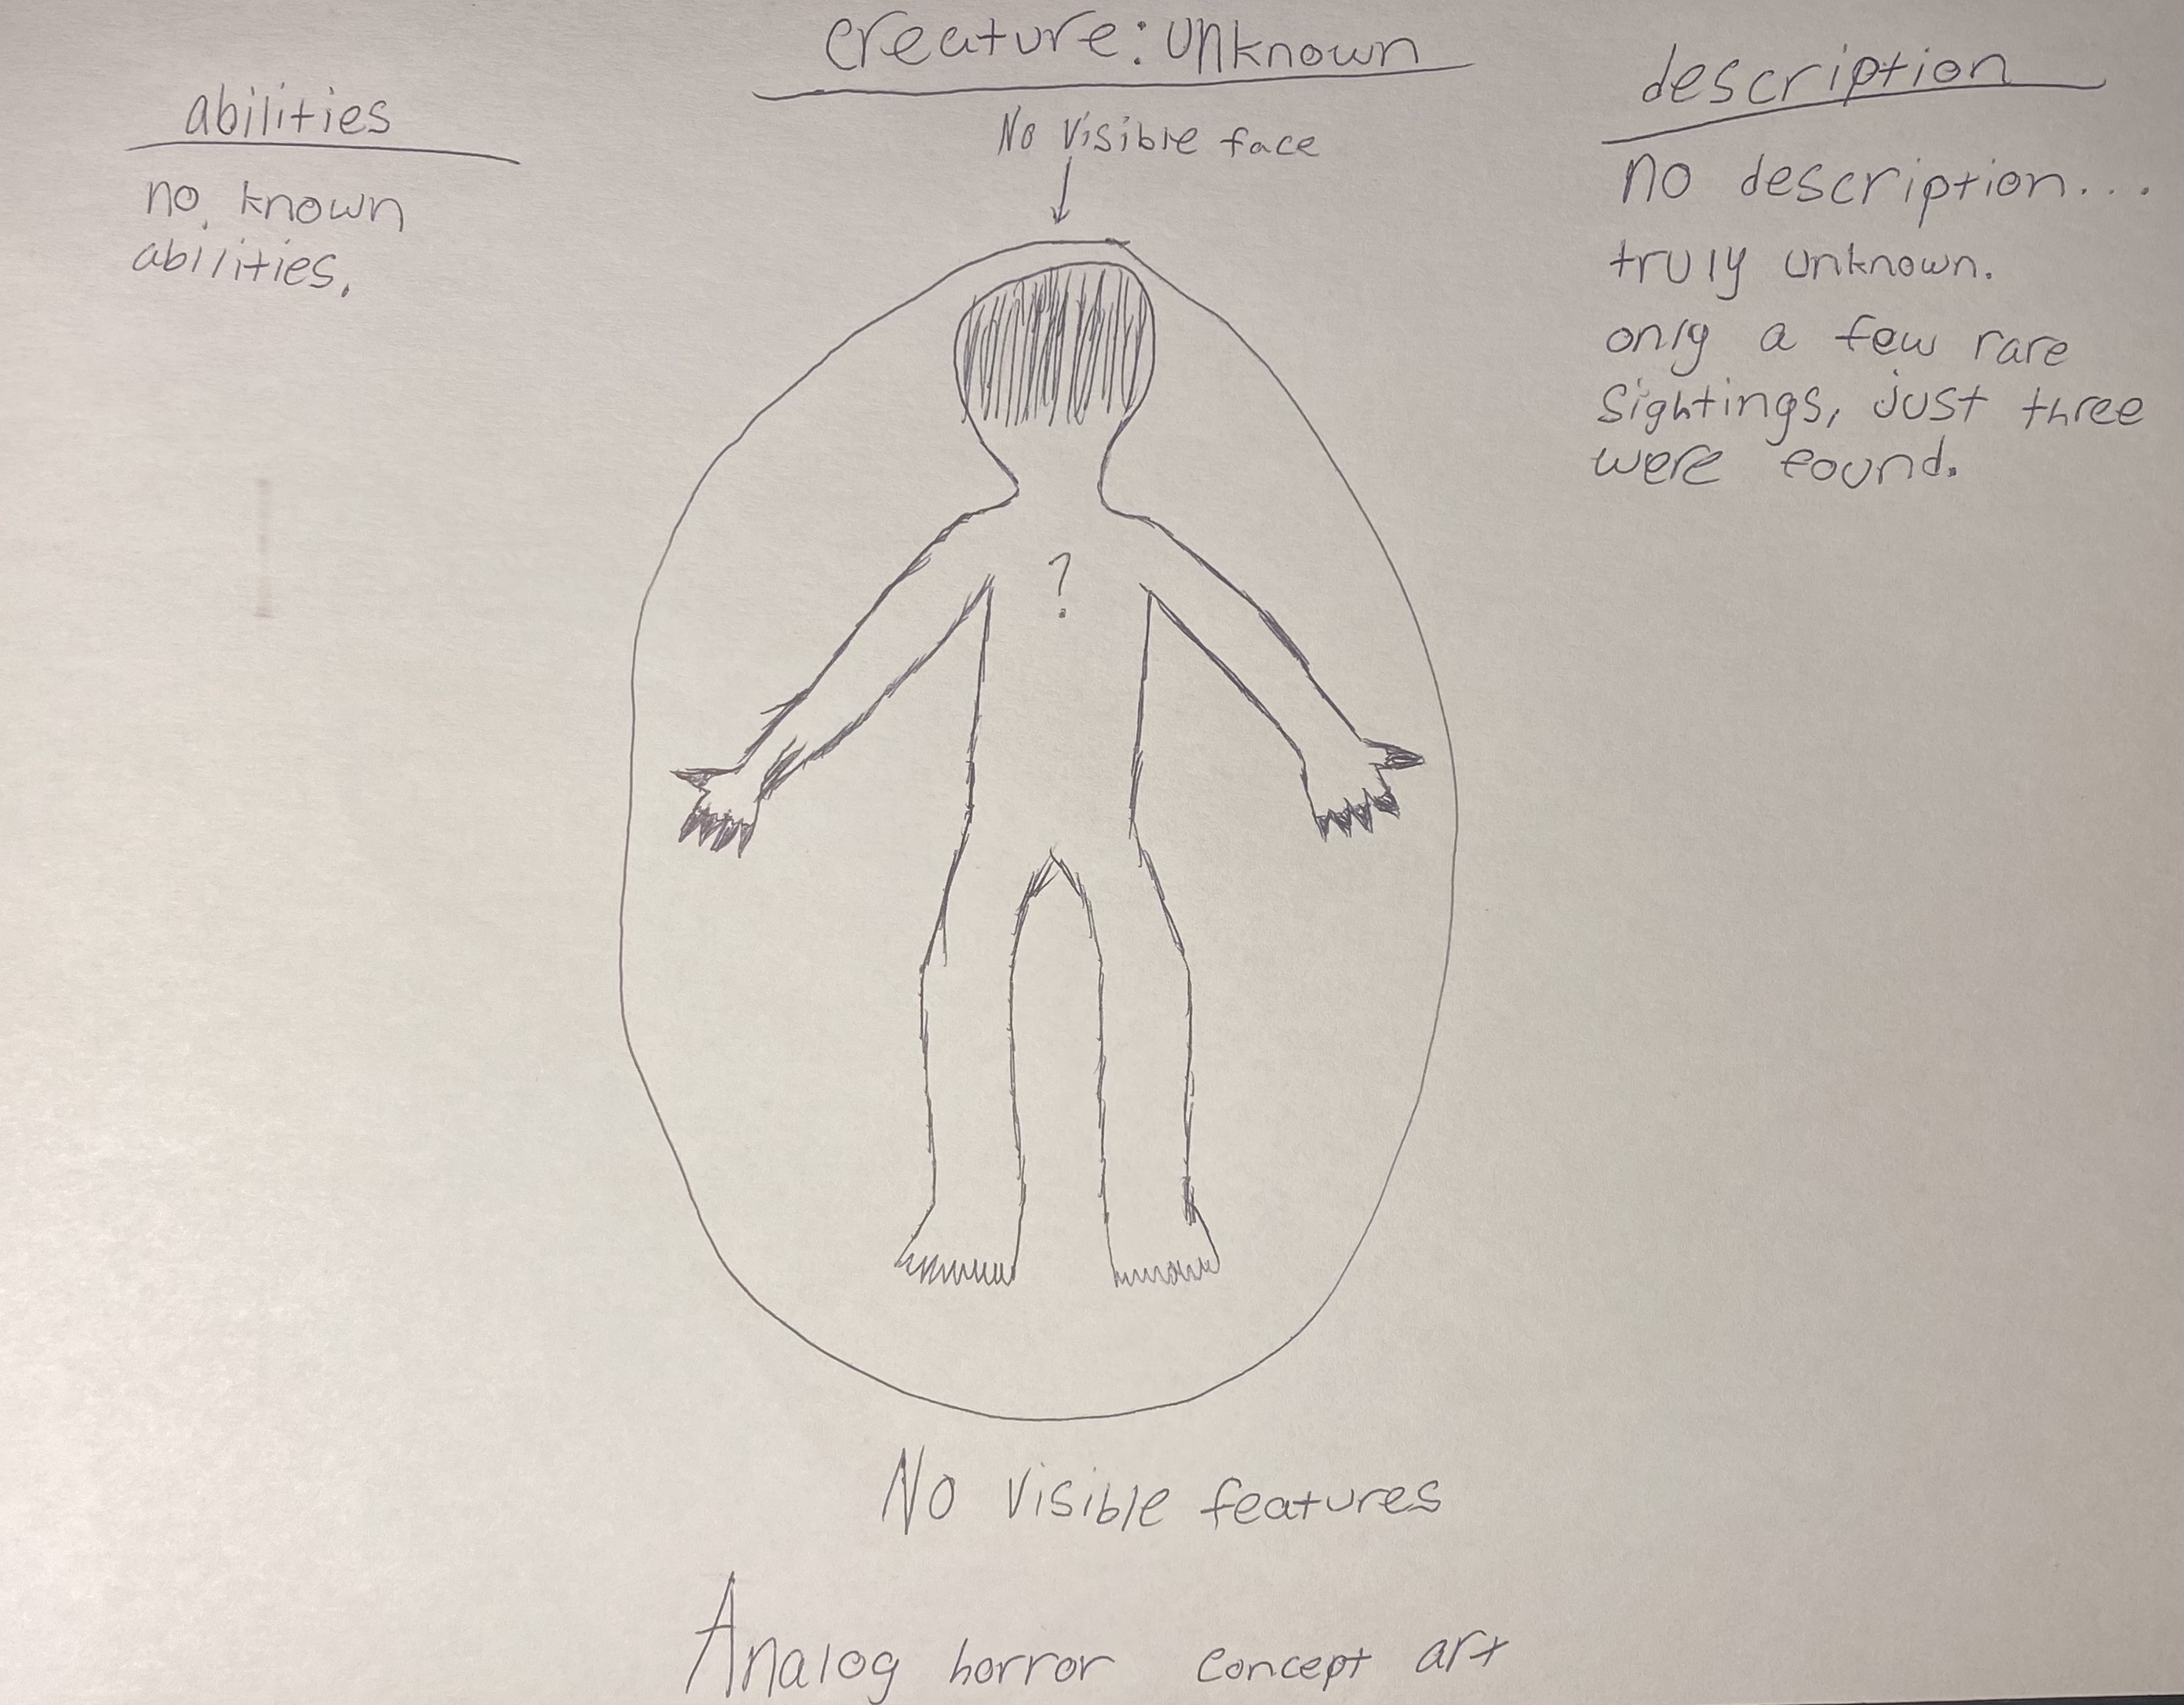 creature: unknown
abilities
no known
abilities.
No Visible face
description
no description...
truly unknown.
only a few rare
sightings, just three
were found.
?
No Visible features
Analog horror concept art